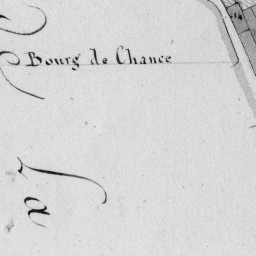 Bourg de Chance